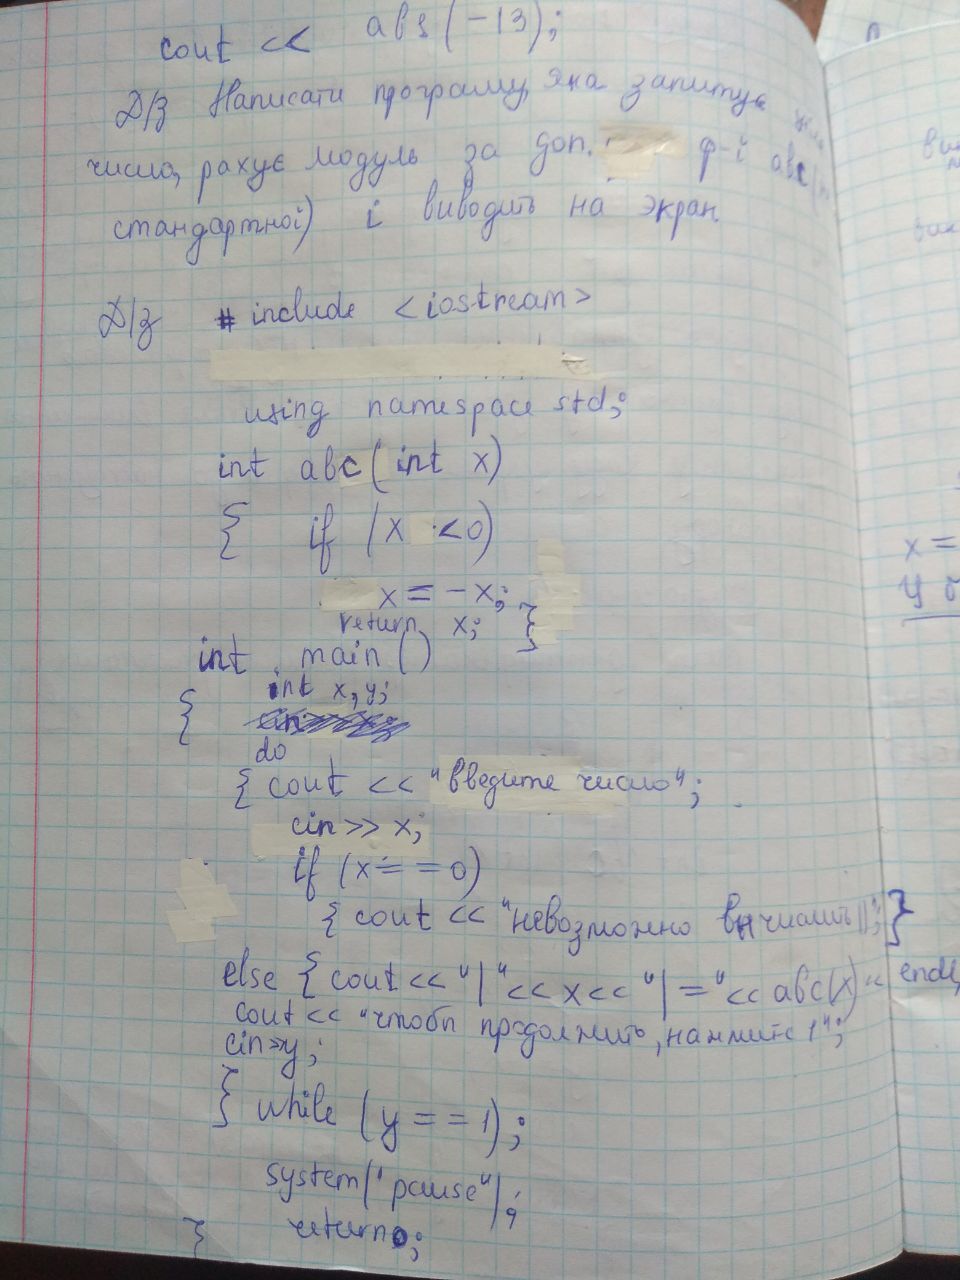 cout << abs(-13);
Д/з Написати програму, яка запитує
число, рахує модуль за доп. ф-ї abc(
стандартної) і виводить на экран.
Д/з # include <iostream>
using namespace std;
int abc(int x)
{ if (x <0)
x = -x;
return x; }
int main()
{ int x, y;
do
{ cout << "введите число";
cin >> x;
if (x = = 0)
{ cout << "невозможно вычислить"; }
else { cout << "|" << x << "| =" << abc(x) << endl;
cout << "чтобы продолжить, нажмите 1";
cin>>y;
} while (y = = 1);
system("pause");
} return 0;
x =